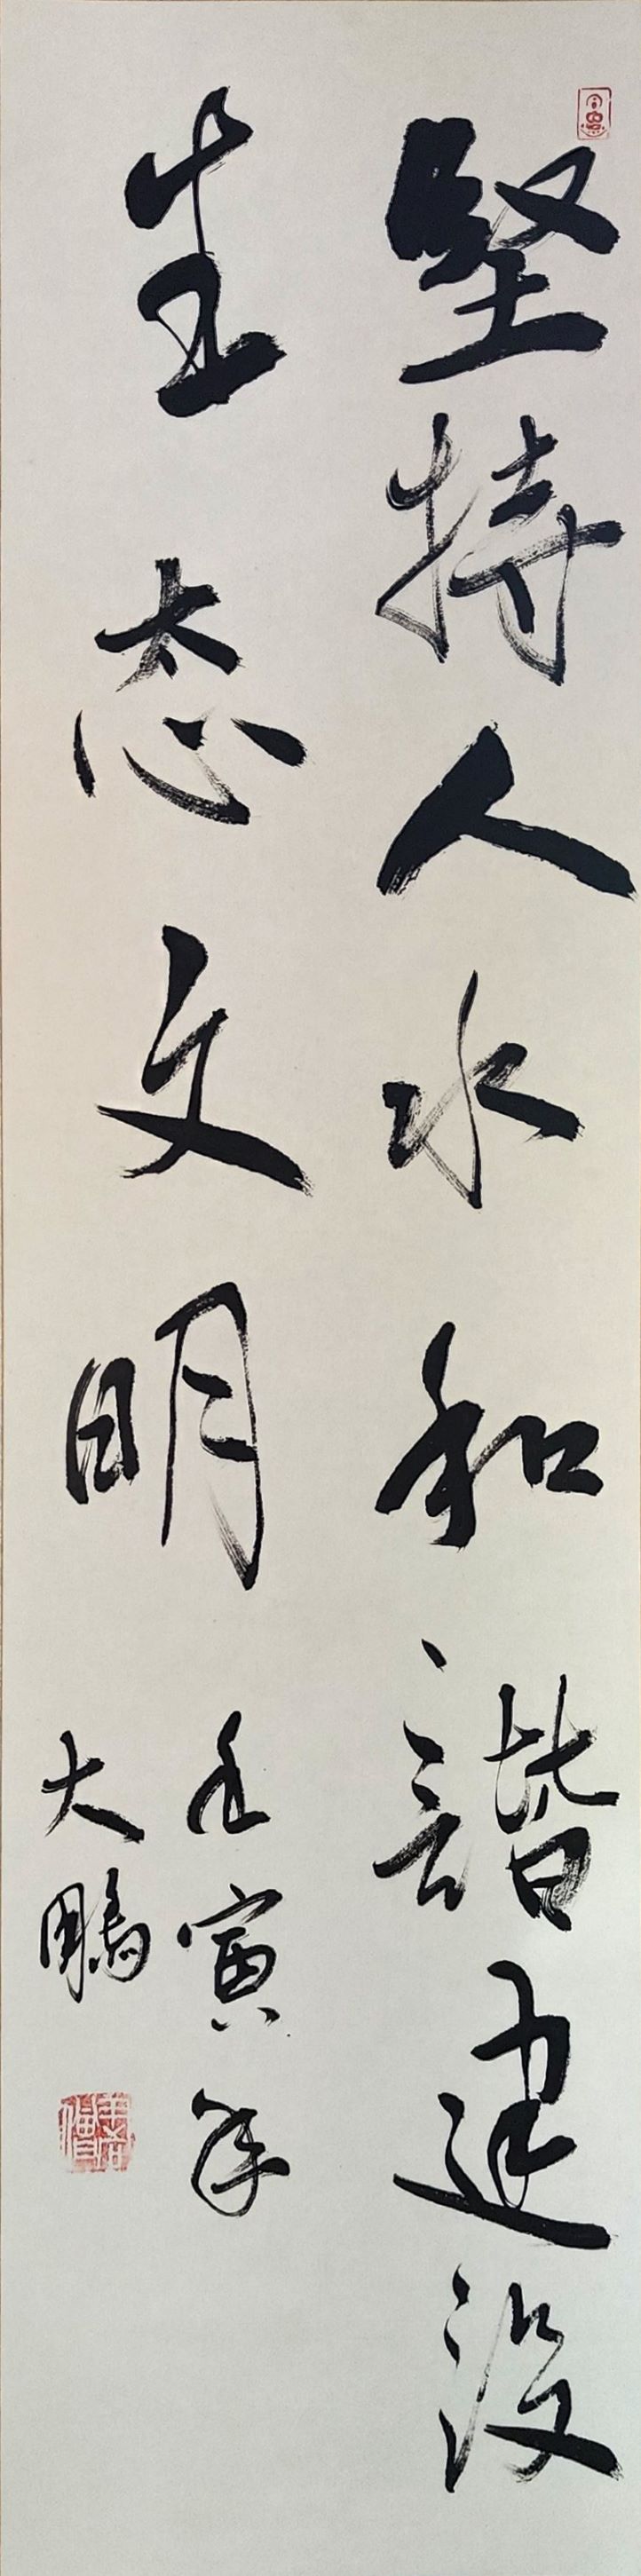 堅持人水和諧建设
生态文明
壬寅年
大鵬